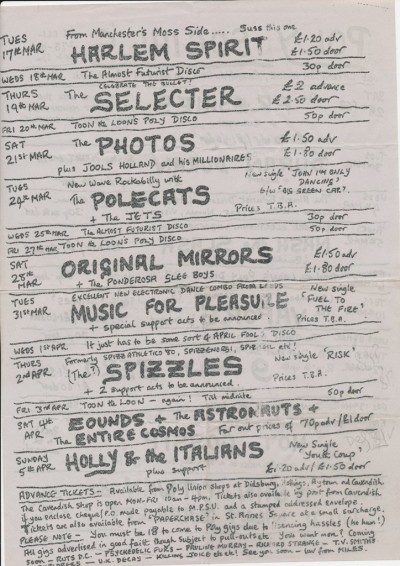 From Manchester's Moss Side..... Suss this one
TUES 17th MAR HARLEM SPIRIT £1.20 adv £1.50 door
WEDS 18th MAR The Almost Futurist Disco 30p door
CELEBRATE THE BULLET!
THURS 19th MAR The SELECTER £2 advance £2.50 door
FRI 20th MAR TOON the LOON'S POLY DISCO 50p door
SAT 21st MAR The PHOTOS £1.50 adv £1.80 door
plus JOOLS HOLLAND and his MILLIONAIRES
TUES 24th MAR New Wave Rockabilly with New single 'JOHN I'M ONLY DANCING'
The POLECATS b/w 'BIG GREEN CAR'
+ The JETS Prices T.B.A.
WEDS 25th MAR The ALMOST FUTURIST DISCO 30p door
FRI 27th MAR TOON the LOONS POLY DISCO 50p door
SAT 28th MAR ORIGINAL MIRRORS £1.50 adv £1.80 door
+ The PONDEROSA GLEE BOYS
EXCELLENT NEW ELECTRONIC DANCE COMBO FROM LEEDS
TUES 31st MAR MUSIC FOR PLEASURE New single 'FUEL TO THE FIRE'
+ special support acts to be announced Prices T.B.A.
WEDS 1st APR It just has to be some sort of APRIL FOOL DISCO
Formerly SPIZZ ATHLETICO 80, SPIZZENERGI, SPIZZ OIL etc!
THURS 2nd APR (The?) SPIZZLES New single 'RISK'
+ 2 support acts to be announced. Prices T.B.A.
FRI 3rd APR TOON the LOON - again! Till midnite 50p door
SAT 4th APR ZOUNDS + The ASTRONAUTS +
The ENTIRE COSMOS Far out prices of 70p adv/£1 door
SUNDAY 5th APR HOLLY & the ITALIANS New Single 'Youth Coup'
plus support £1.20 adv/£1.50 door
ADVANCE TICKETS - Available from Poly Union Shops at Didsbury, Aytoun and Cavendish.
The Cavendish Shop is open Mon-Fri 10am - 4pm. Tickets also available by post from Cavendish
if you enclose cheque/P.O. made payable to M.P.S.U. and a stamped addressed envelope.
Tickets are also available from 'PAPERCHASE' in St. Annes Square at a small surcharge.
PLEASE NOTE - You must be 18 to come to Poly gigs due to licensing hassles (ho hum!)
All gigs advertised in good faith though subject to pull-outs etc. You want more? Coming
soon - RUTS D.C. - PSYCHEDELIC FURS - PAULINE MURRAY - RICHARD STRANGE - T.V. SMITH'S
- U.K. DECAYS - KILLING JOKE etc etc! See you soon - luv from MILES.